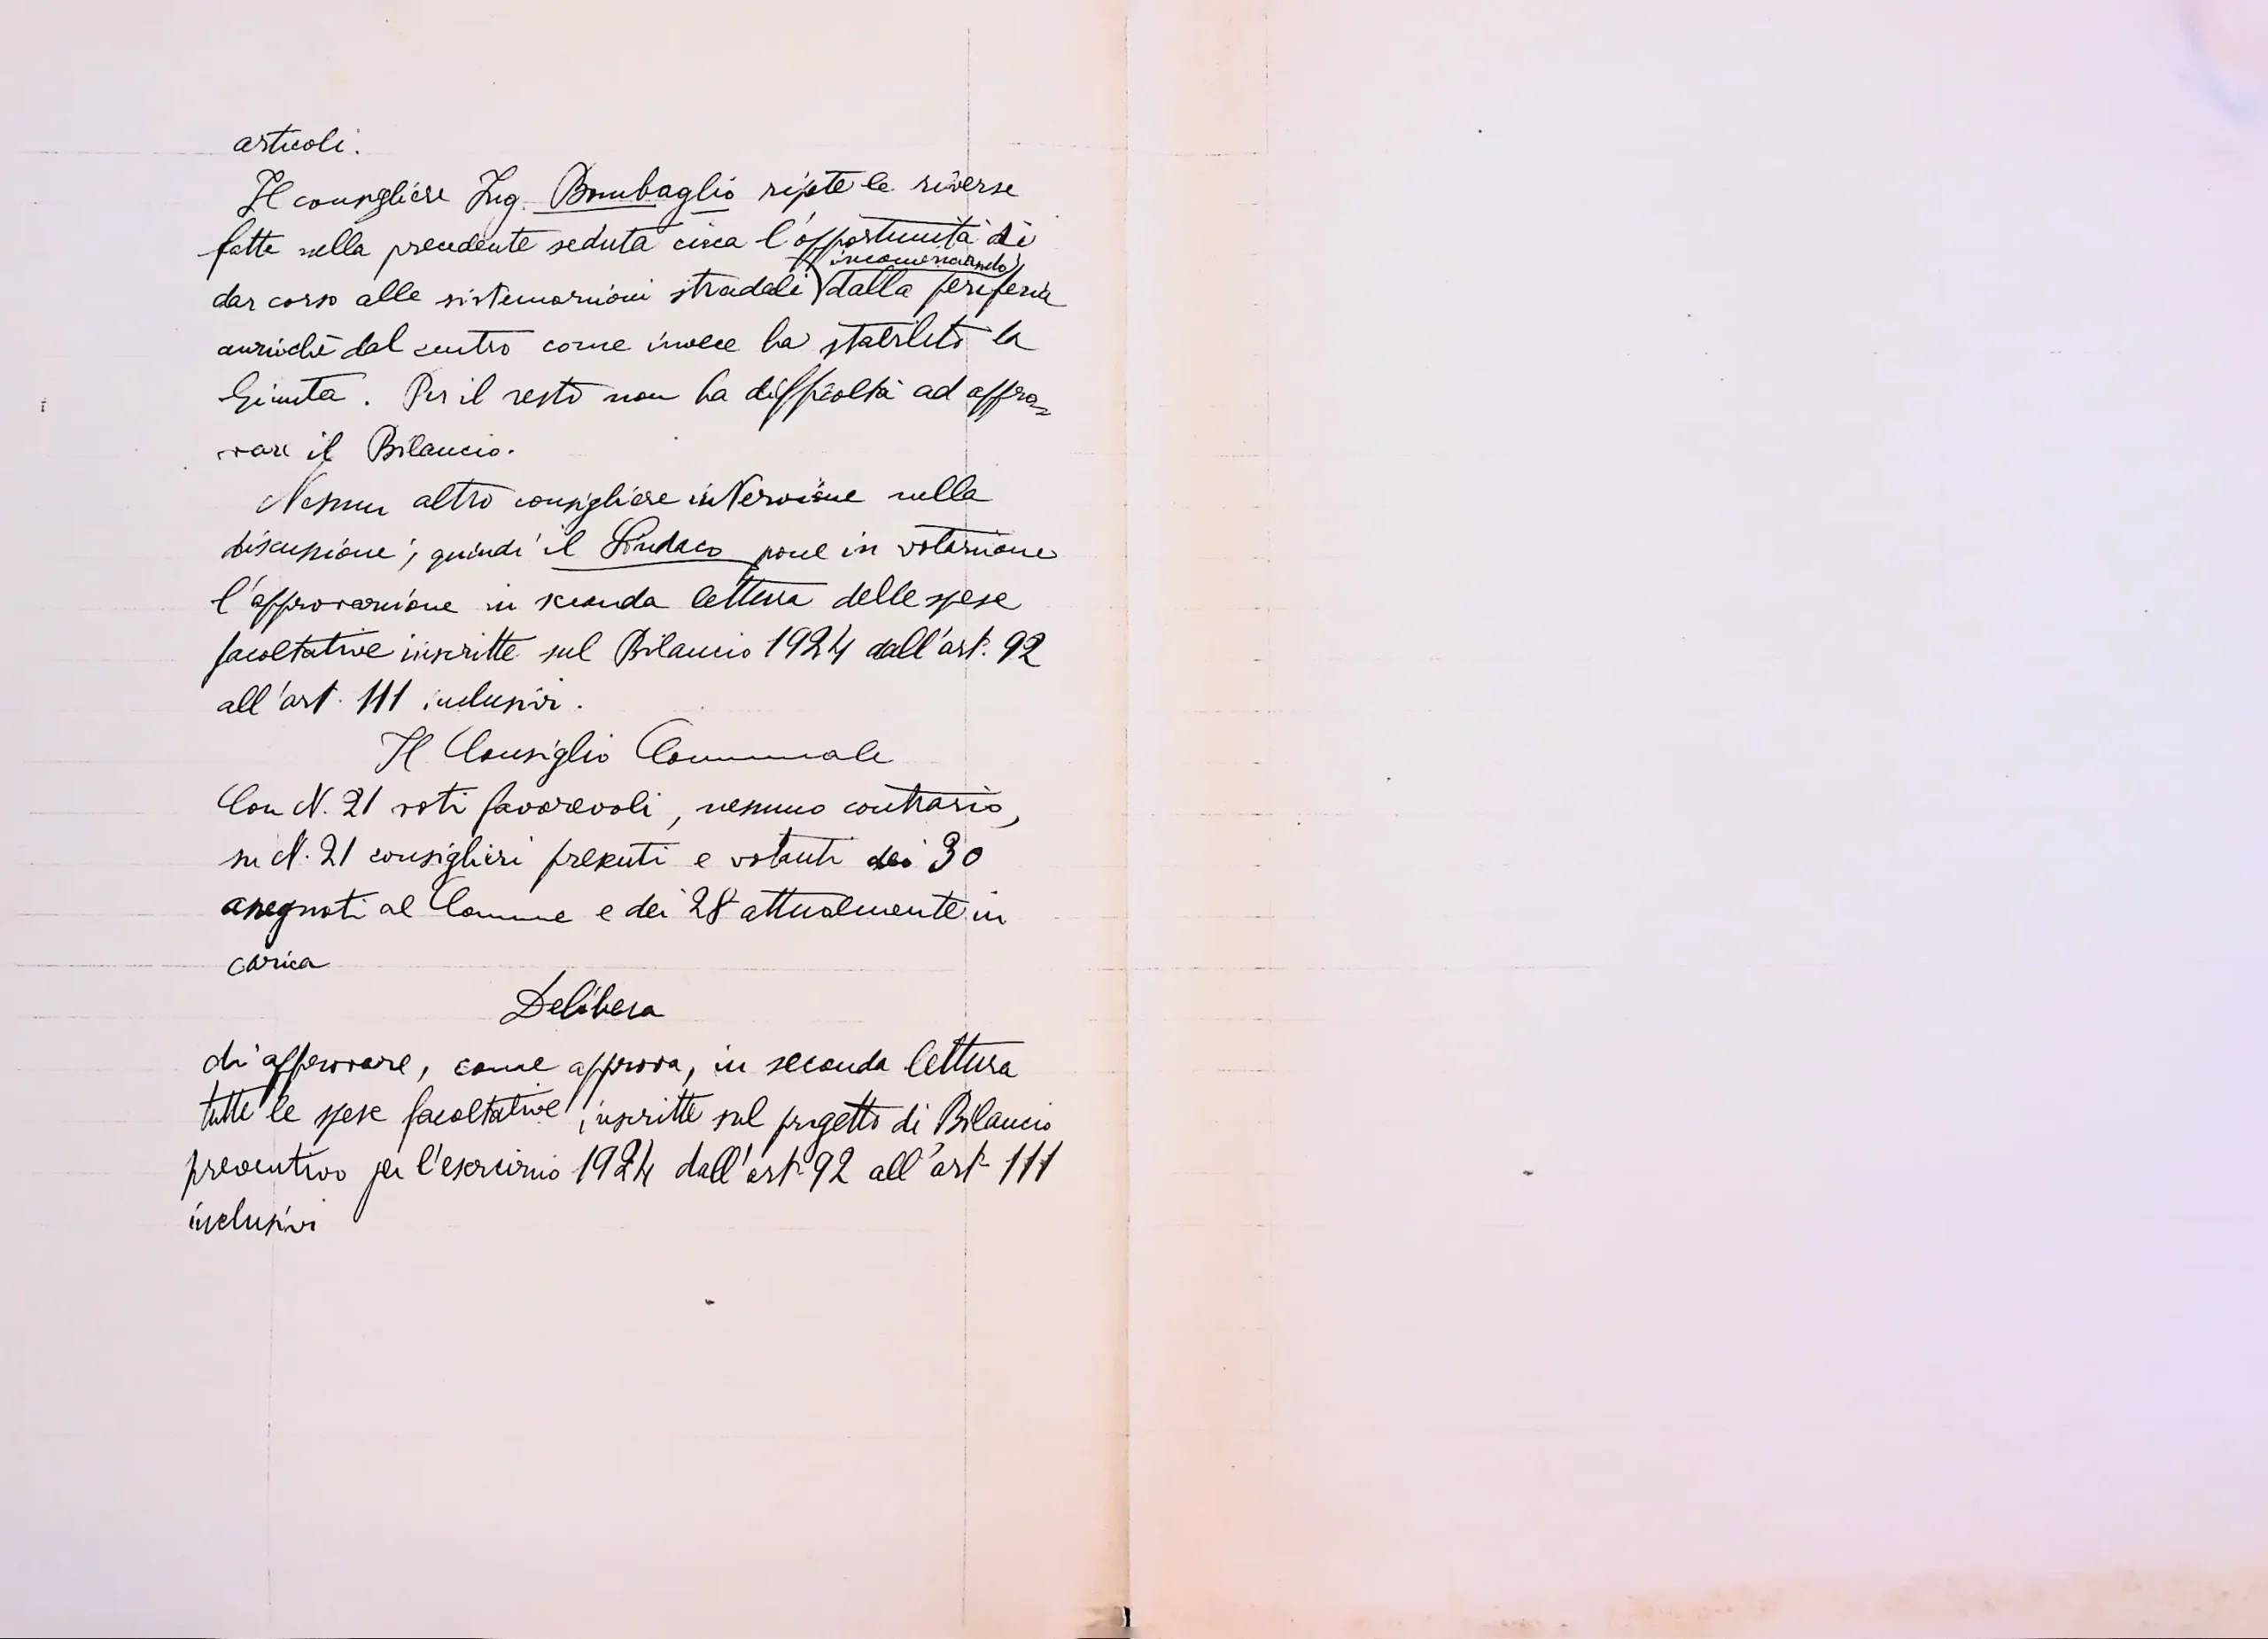 articoli.
Il consigliere Ing. Bombaglio ripete le riserve
fatte nella precedente seduta circa l'opportunità di
incominciando
dar corso alle sistemazioni stradali dalla periferia
anzichè dal centro come invece ha stabilito la
Giunta. Per il resto non ha difficoltà ad appro=
vare il Bilancio.
Nessun altro consigliere interviene nella
discussione; quindi il Sindaco pone in votazione
l'approvazione in seconda lettura delle spese
facoltative inscritte sul Bilancio 1924 dall'art. 92
all'art. 111 inclusivi.
Il Consiglio Comunale
Con N. 21 voti favorevoli, nessuno contrario,
su N. 21 consiglieri presenti e votanti dei 30
assegnati al Comune e dei 28 attualmente in
carica
Delibera
di approvare, come approva, in seconda lettura
tutte le spese facoltative inscritte sul progetto di Bilancio
preventivo per l'esercizio 1924 dall'art. 92 all'art. 111
inclusivi